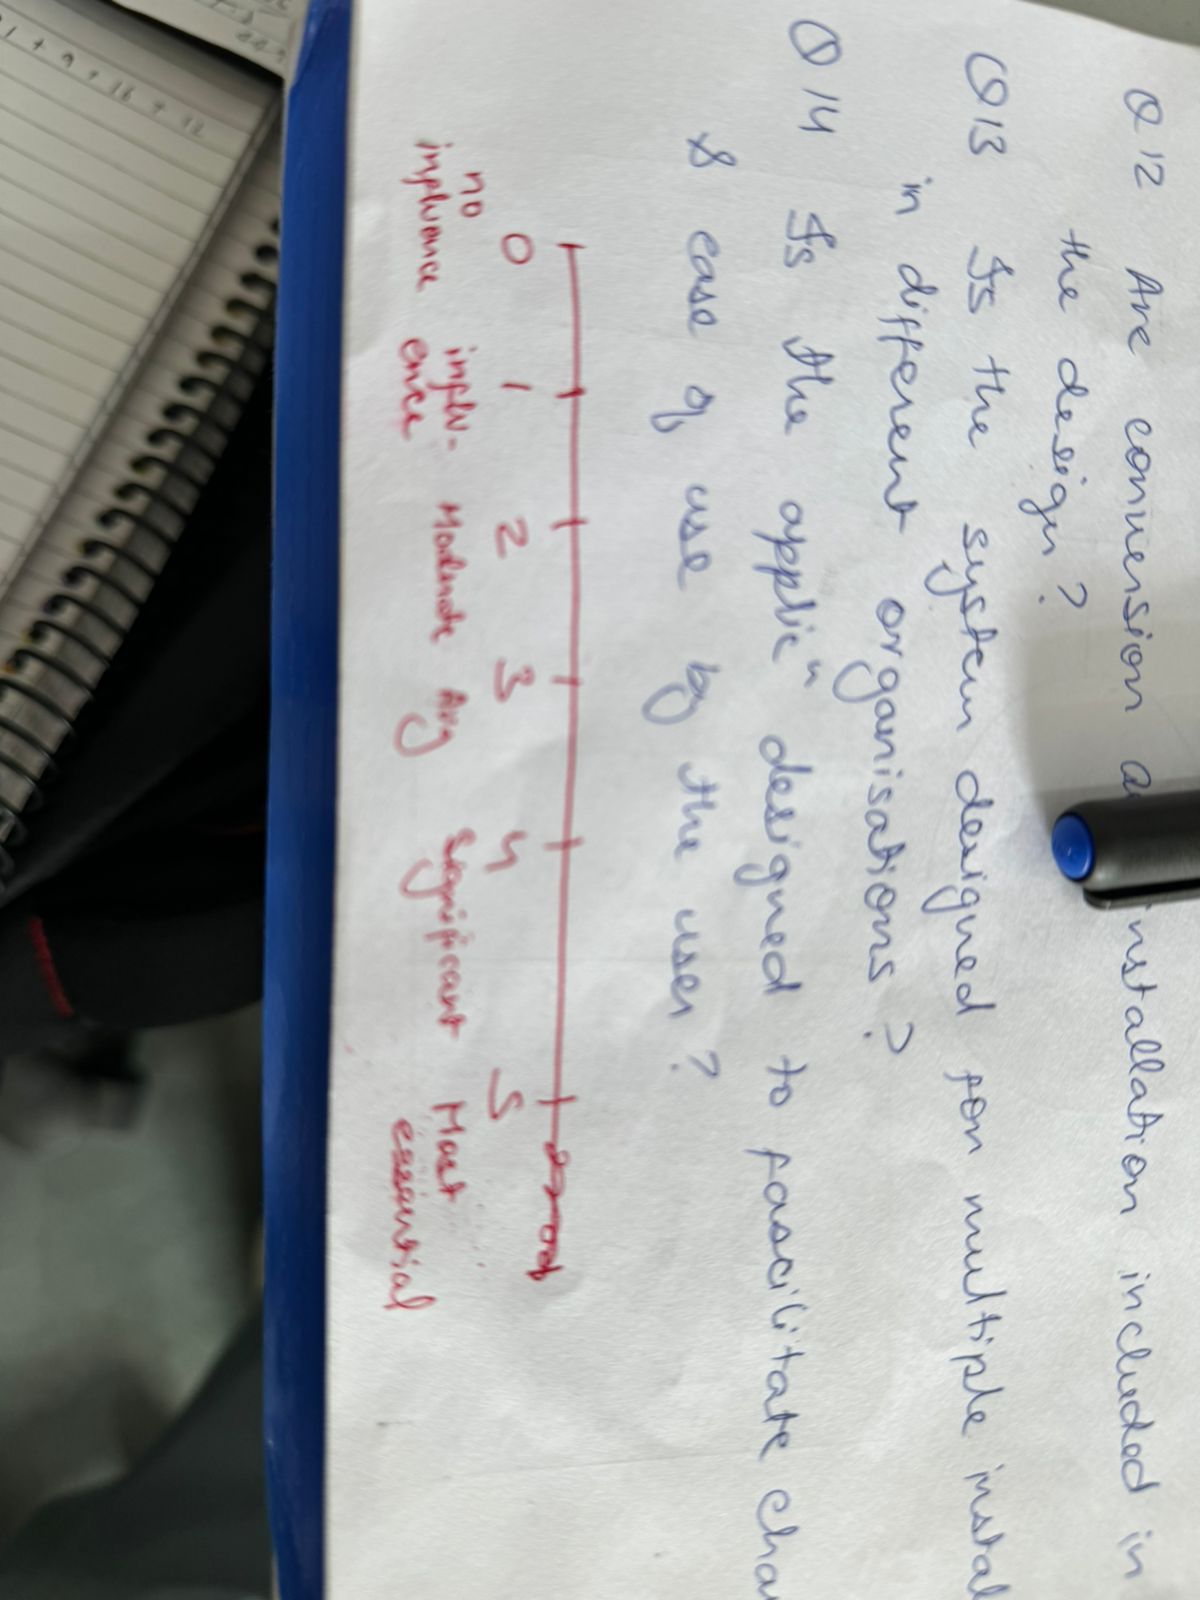 Q12 Are conversion a installation included in
the design?
Q13 Is the system designed for multiple instal
in different organisations?
Q14 Is the applicⁿ designed to fascilitate cha
& ease of use by the user?
0 1 2 3 4 5
no implu- Moderate Avg Significant Most
ence essential
1 + 9 + 16 +